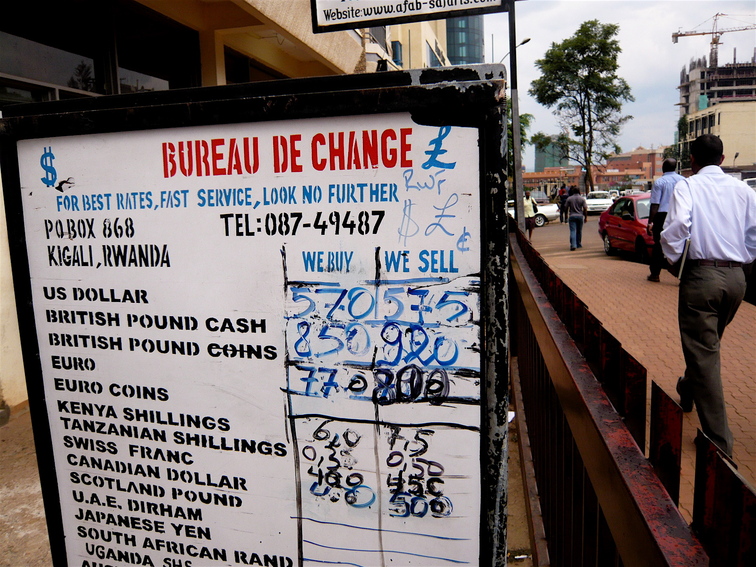 Website:www.afab-safaris.com
$ BUREAU DE CHANGE £
FOR BEST RATES, FAST SERVICE, LOOK NO FURTHER
RWF
$ £
P.O.BOX 868 TEL:087-49487
¢
KIGALI, RWANDA
WE BUY WE SELL
US DOLLAR 570 575
BRITISH POUND CASH 850 920
BRITISH POUND COINS
EURO 770 800
EURO COINS
KENYA SHILLINGS
TANZANIAN SHILLINGS
SWISS FRANC
CANADIAN DOLLAR
SCOTLAND POUND
U.A.E. DIRHAM
JAPANESE YEN
SOUTH AFRICAN RAND
UGANDA SHS